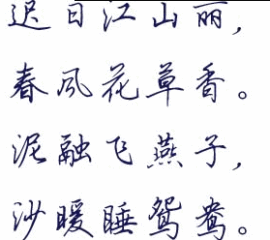 迟日江山丽，
春风花草香。
泥融飞燕子，
沙暖睡鸳鸯。